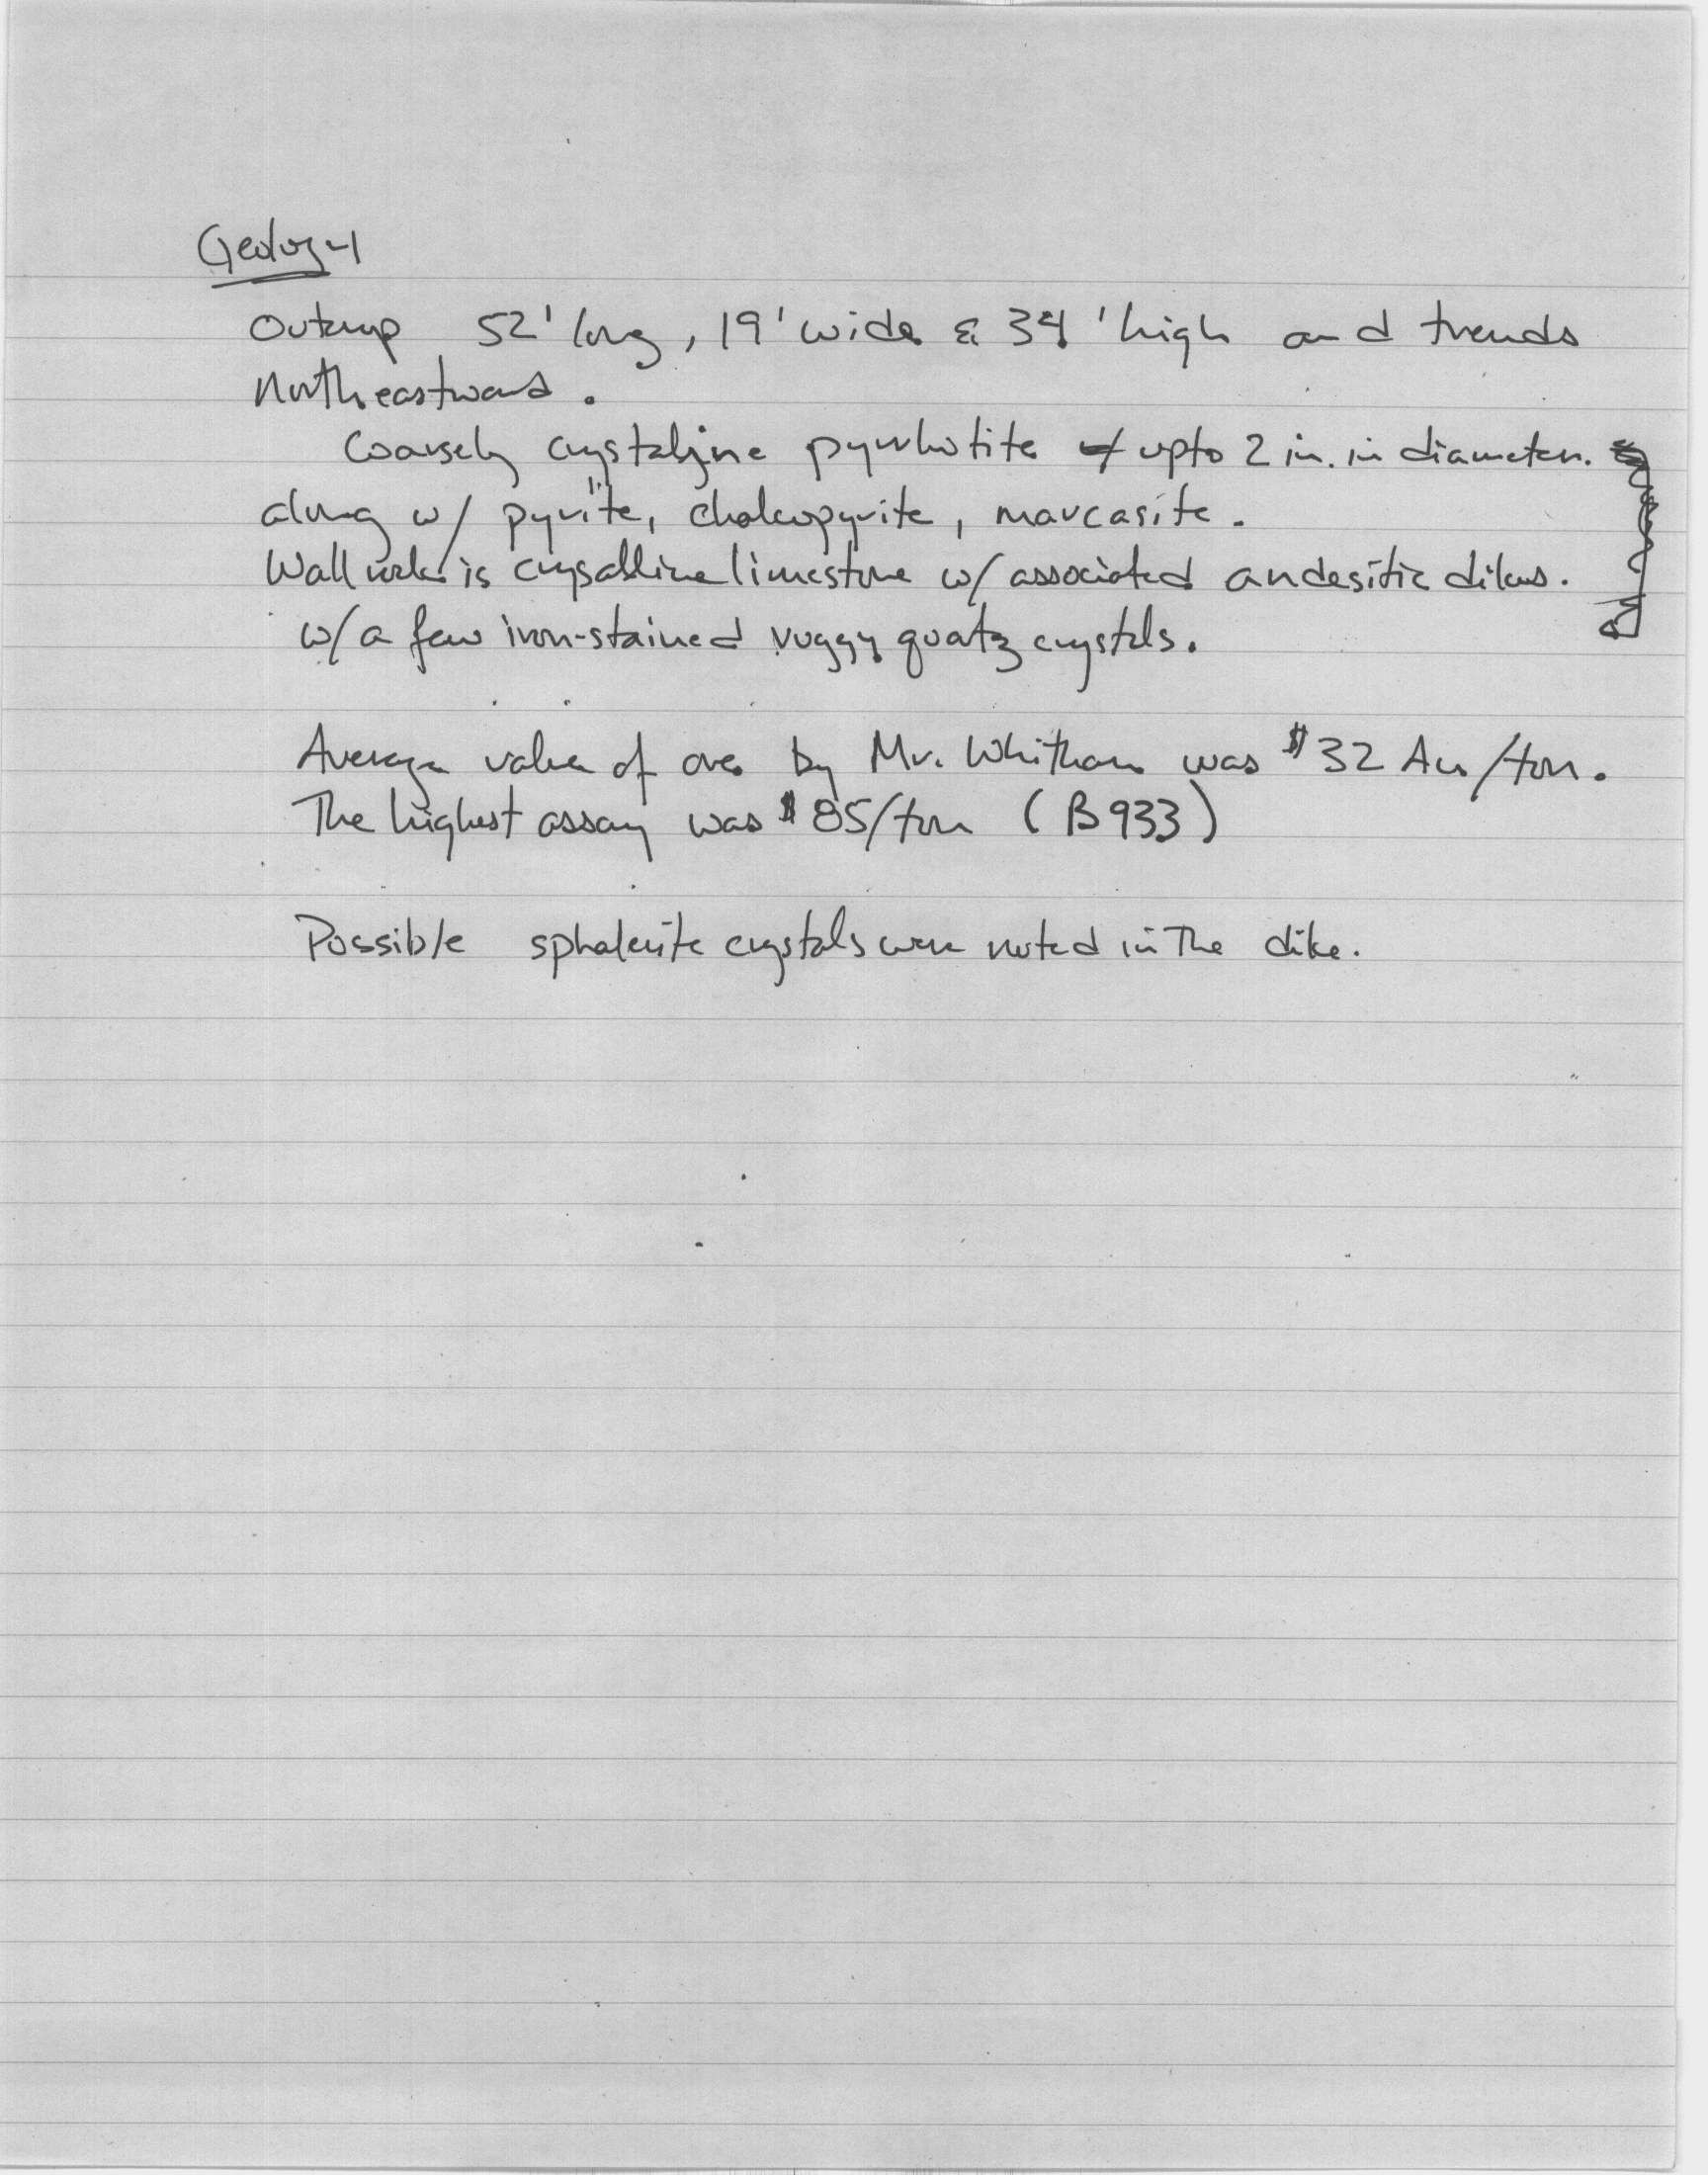 Geology
Outcrop 52' long, 19' wide & 34' high and trends
Northeastward.
Coarsely crystalline pyrrhotite upto 2 in. in diameter.
along w/ pyrite, chalcopyrite, marcasite.
Wall rock is crysalline limestone w/ associated andesitic dikes.
w/ a few iron-stained vuggy quatz crystals.
Average value of ore by Mr. Whitham was $32 Au/ton.
The highest assay was $85/ton (B933)
Possible sphalerite crystals were noted in The dike.